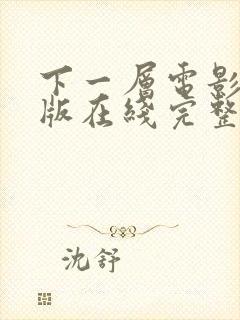 下一層電影
版在綫完整
沈舒